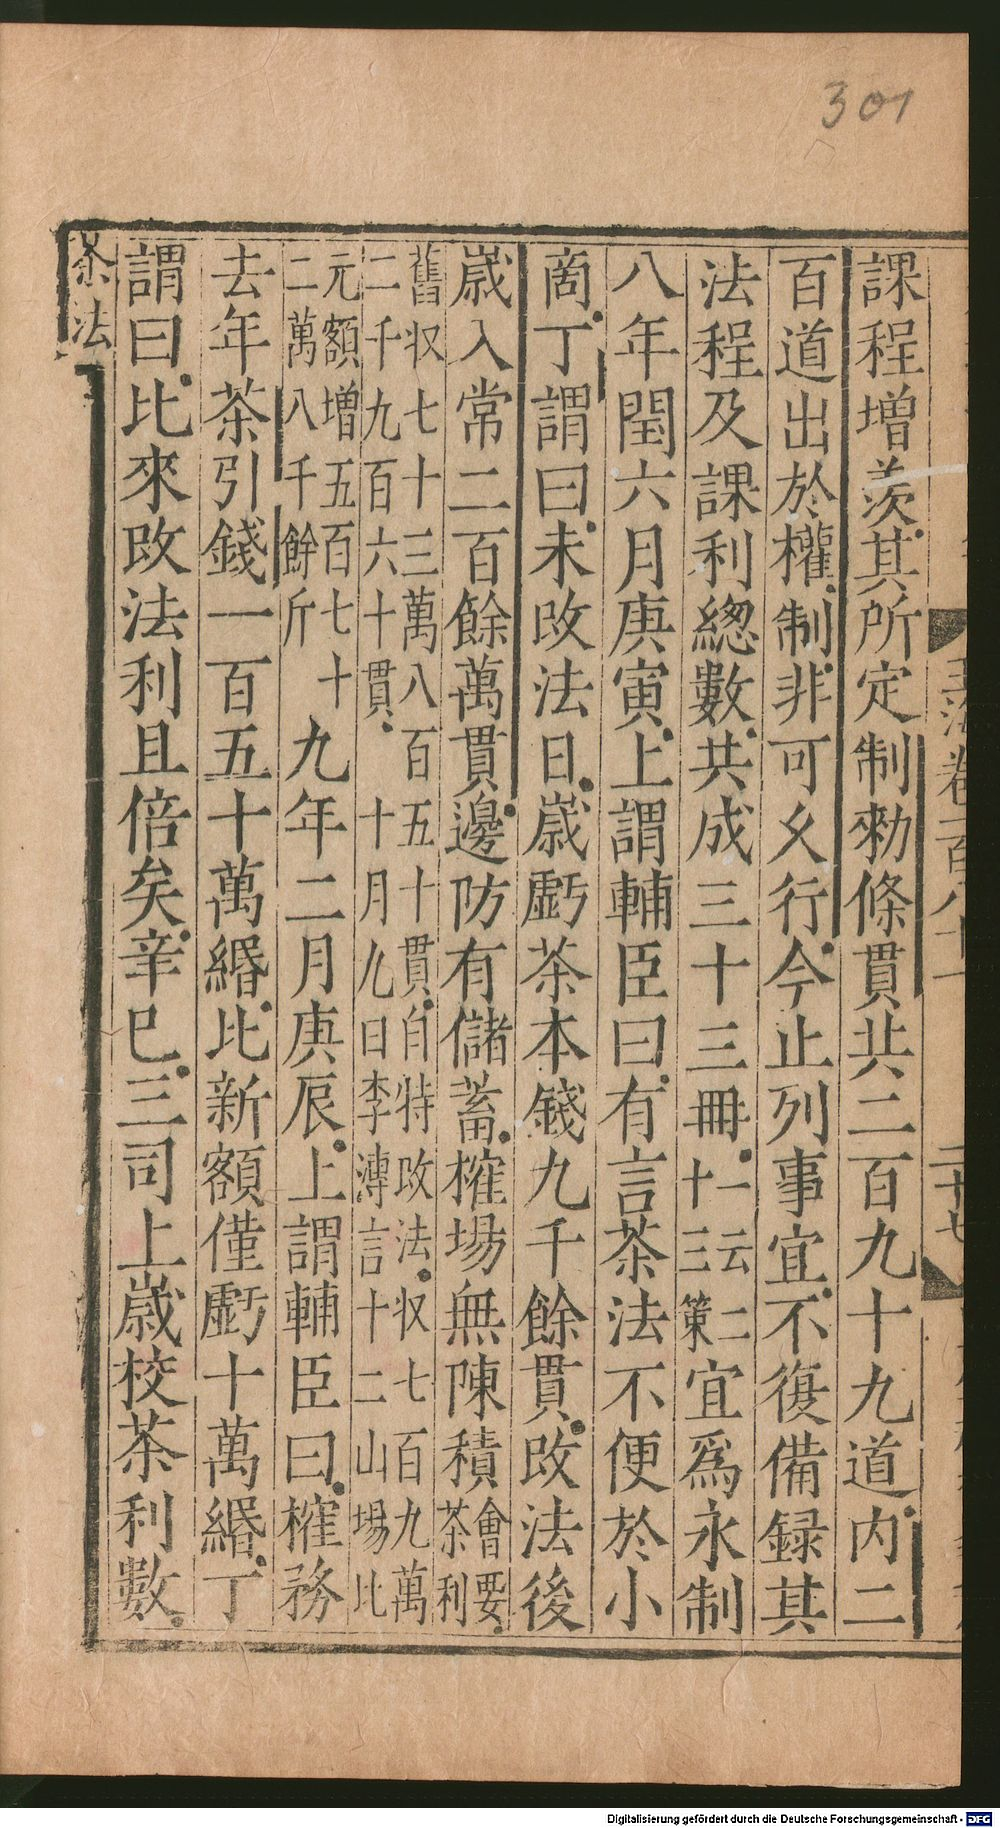 301
玉海卷一百八十一
二十七
課程増羨其所定制勑條貫共二百九十九道內二
百道出於權制非可久行今止列事宜不復備録其
法程及課利緫數共成三十三冊一云二十三策宜爲永制
八年閏六月庚寅上謂輔臣曰有言茶法不便於小
商丁謂曰未改法日嵗虧茶本錢九千餘貫改法後
嵗入常二百餘萬貫邊防有儲蓄榷場無陳積會要茶利
舊収七十三萬八百五十貫自特改法収七百九萬二千九百六十貫十月九日李溥言十二山場比
元額増五百七十二萬八千餘斤九年二月庚辰上謂輔臣曰榷務
去年茶引錢一百五十萬緡比新額僅虧十萬緡丁
謂曰比來改法利且倍矣辛巳三司上嵗校茶利數
茶法
Digitalisierung gefördert durch die Deutsche Forschungsgemeinschaft - DFG